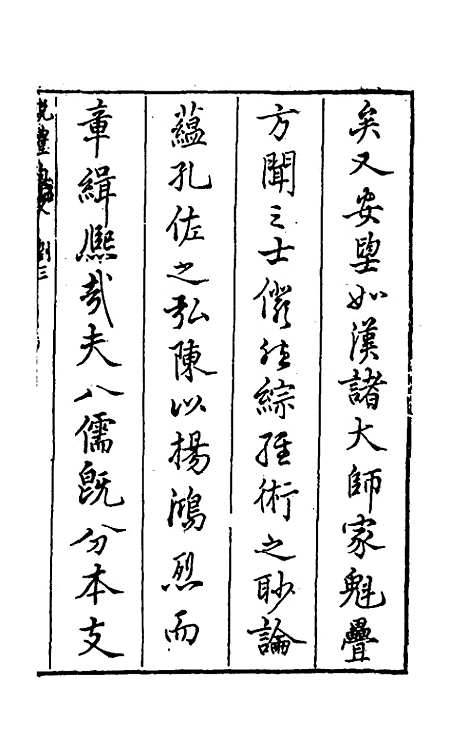 矣又安望如漢諸大師家魁壘
方聞之士儼然綜經術之眇論
蘊孔佐之弘陳以揚鴻烈而
章緝熙哉夫八儒旣分本支